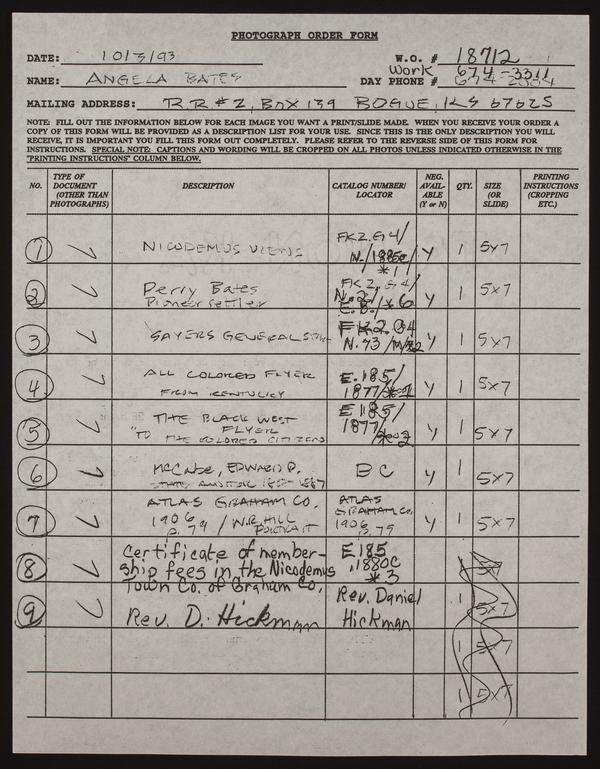 PHOTOGRAPH ORDER FORM
DATE: 10/3/93 W.O. # 18712
NAME: ANGELA BATES DAY PHONE # Work 674-3311
MAILING ADDRESS: RR#2, BOX 139 BOGUE, KS 67625
NOTE: FILL OUT THE INFORMATION BELOW FOR EACH IMAGE YOU WANT A PRINT/SLIDE MADE. WHEN YOU RECEIVE YOUR ORDER A
COPY OF THIS FORM WILL BE PROVIDED AS A DESCRIPTION LIST FOR YOUR USE. SINCE THIS IS THE ONLY DESCRIPTION YOU WILL
RECEIVE, IT IS IMPORTANT YOU FILL THIS FORM OUT COMPLETELY. PLEASE REFER TO THE REVERSE SIDE OF THIS FORM FOR
INSTRUCTIONS. SPECIAL NOTE: CAPTIONS AND WORDING WILL BE CROPPED ON ALL PHOTOS UNLESS INDICATED OTHERWISE IN THE
"PRINTING INSTRUCTIONS" COLUMN BELOW.
NO. TYPE OF DOCUMENT (OTHER THAN PHOTOGRAPHS) DESCRIPTION CATALOG NUMBER/ LOCATOR NEG. AVAIL-ABLE (Y or N) QTY. SIZE (OR SLIDE) PRINTING INSTRUCTIONS (CROPPING ETC.)
1 NICODEMUS VIEWS FK2.G4/ N./1885c/ *1 Y 1 5x7
2 Perry Bates Pioneer settler FK2.G4/ *6 Y 1 5x7
3 SAYERS GENERAL FK2.G4 N.73 Y 1 5x7
4 ALL COLORED FLYER FROM KENTUCKY E.185/ 1877/*1 Y 1 5x7
5 THE BLACK WEST FLYER "TO THE COLORED CITIZENS E185/ 1877/*2 Y 1 5x7
6 McCabe, EDWARD P. STATE AUDITOR BC Y 1 5x7
7 ATLAS GRAHAM CO. 1906 p. 79 / W.R. HILL PORTRAIT ATLAS GRAHAM CO. 1906 p. 79 Y 1 5x7
8 Certificate of member-
ship fees in the Nicodemus
Town Co. of Graham Co. E185 .1880c *3 5x7
9 Rev. D. Hickman Rev. Daniel Hickman 1 5x7
1 5x7
1 5x7